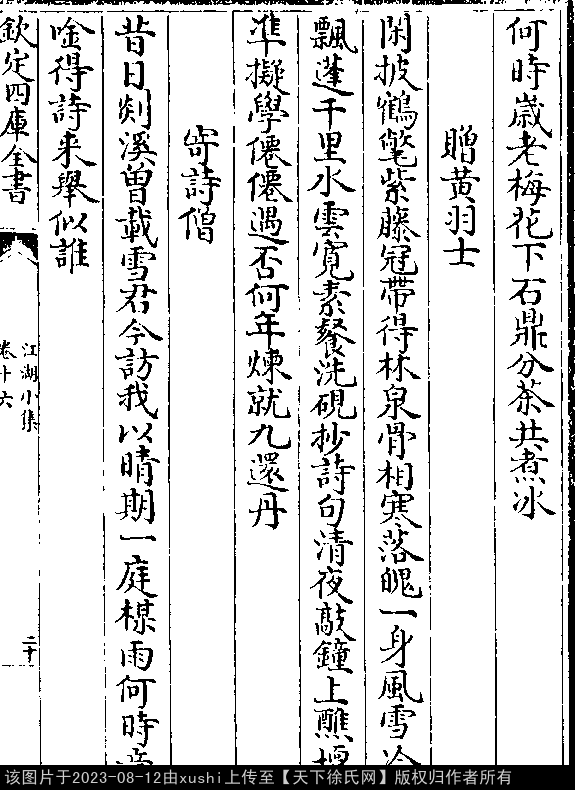 何時歲老梅花下石鼎分茶共煮冰
贈黃羽士
閑披鶴氅紫藤冠帶得林泉骨相寒落魄一身風雪冷
飄蓬千里水雲寬素餐洗硯抄詩句清夜敲鐘上醮壇
準擬學僊僊遇否何年煉就九還丹
寄詩僧
昔日剡溪曾載雪君今訪我以晴期一庭楳雨何時
唫得詩來舉似誰
欽定四庫全書
江湖小集
卷十六
二十
该图片于2023-08-12由xushi上传至【天下徐氏网】版权归作者所有